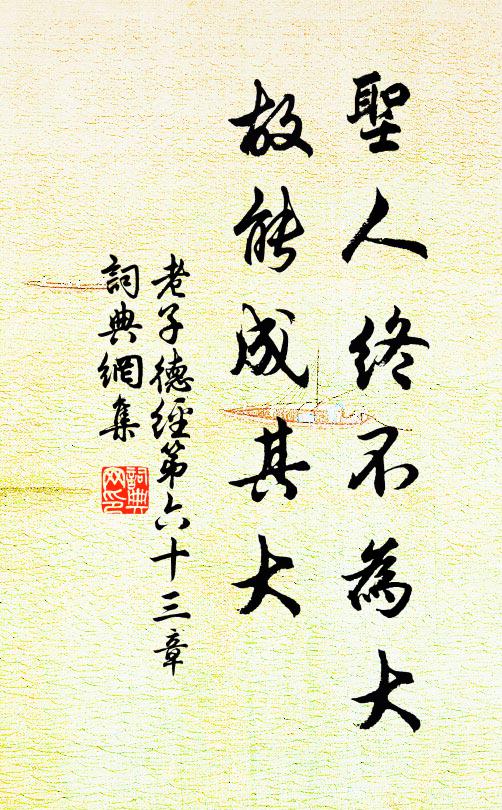 聖人終不為大
故能成其大
老子德經第六十三章
詞典網集
詞典
网印